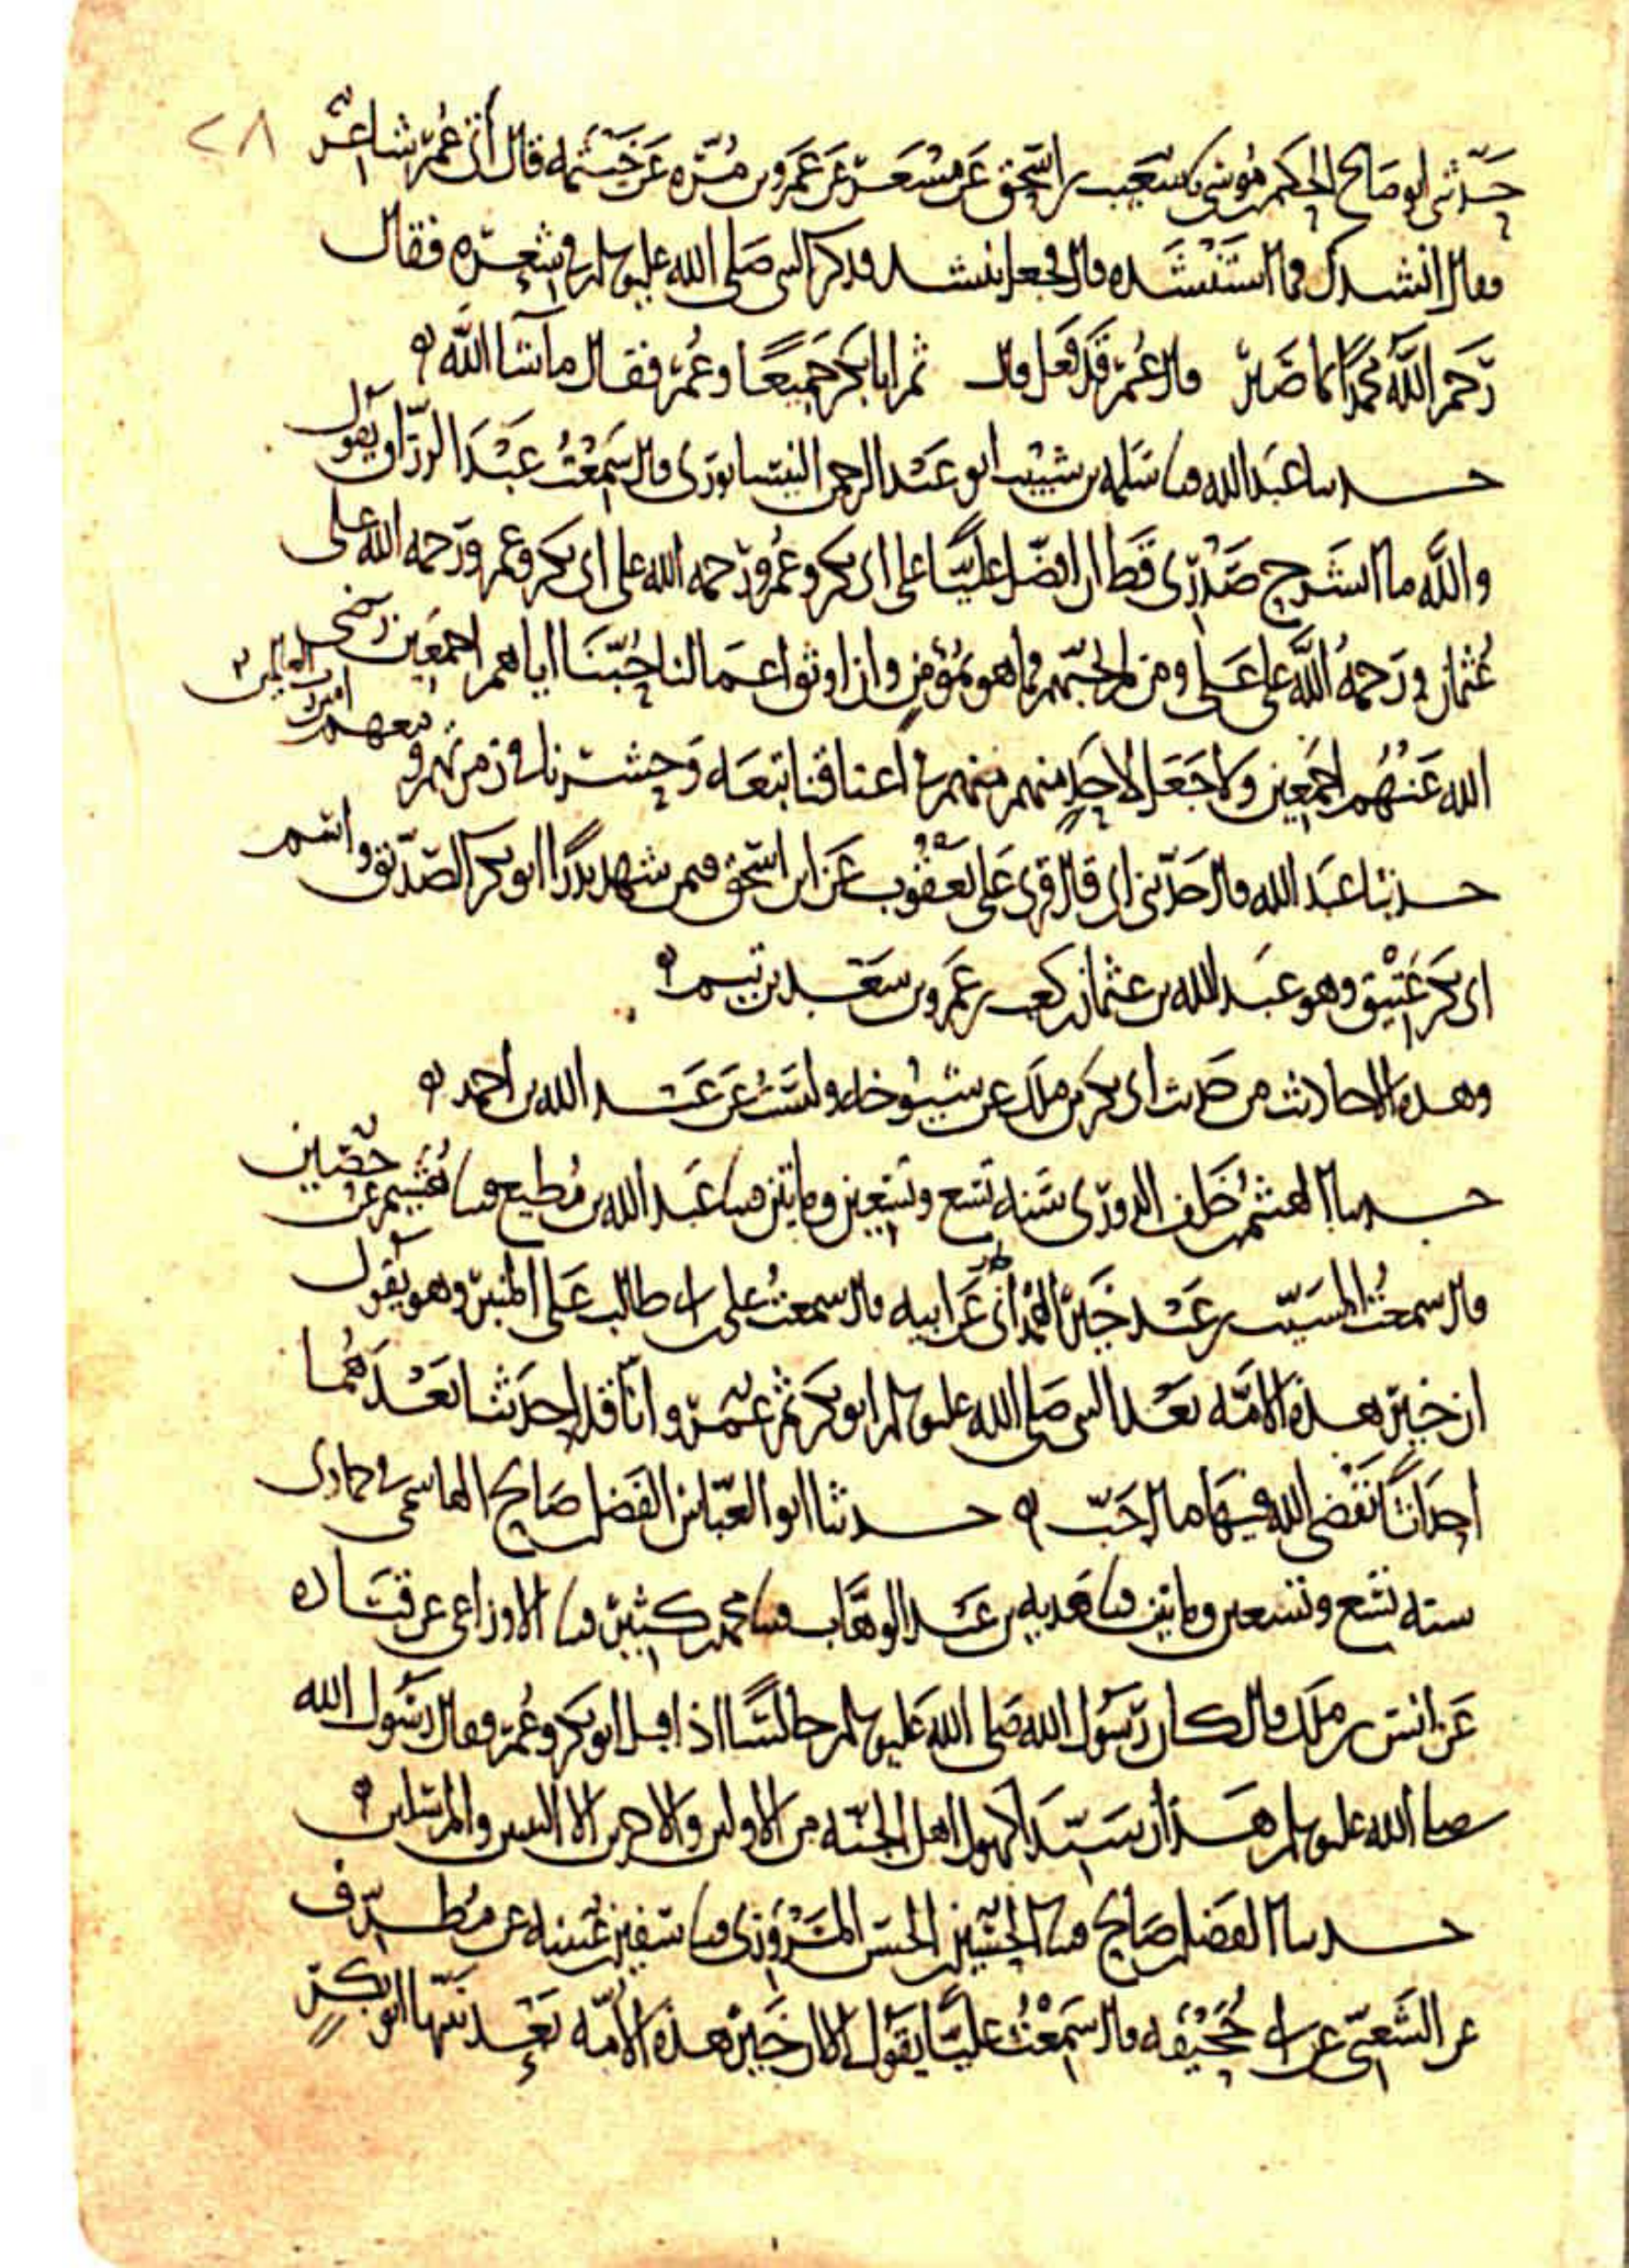 ٢٨
حدثني ابو صالح الحكم بن موسى نا شعيب بن اسحق عن مسعر عن عمرو بن مره عن خيثمه قال اتى عمر شاعر
فقال انشدك فما استنشده قال فجعل ينشد فذكر النبي صلى الله عليه وسلم في شعره فقال
رحم الله محمدا كما صبر قال عمر قد فعل قال ثم ابا بكر جميعا وعمر فقال ما شا الله
حدثنا عبد الله قثنا سلمه بن شبيب ابو عبد الرحمن النيسابوري قال سمعت عبد الرزاق يقول
والله ما انشرح صدري قط ان افضل عليا على ابي بكر وعمر ورحمه الله على ابي بكر وعمر ورحمه الله على
عثمان ورحمه الله على علي ومن لم يحبهم فما هو بمؤمن وان اوثق اعمالنا حبنا اياهم اجمعين رضي
الله عنهم اجمعين ولا جعل لاحد منهم في اعناقنا تبعه وحشرنا في زمرتهم و
معهم امين رب العالمين
حدثنا عبد الله قال حدثني ابي قال قرئ على يعقوب عن ابن اسحق فيمن شهد بدرا ابو بكر الصديق واسم
ابي بكر عتيق وهو عبد الله بن عثمان بن كعب بن عمرو بن سعد بن تيم
وهذه الاحاديث من حديث ابي بكر بن ملك عن شيوخه وليست عن عبد الله بن احمد
حدثنا الهيثم بن خلف الدوري سنه تسع وتسعين ومايتين قثنا عبد الله بن مطيع قثنا هشيم عن حصين
قال سمعت المسيب بن عبد خير الهمداني عن ابيه قال سمعت علي بن ابي طالب على المنبر وهو يقول
ان خير هذه الامه بعد النبي صلى الله عليه وسلم ابو بكر ثم عمر وانا قد احدثنا بعدهما
احداثا نقضي الله فيها ما احب حدثنا ابو العباس الفضل بن صالح الهاشمي في جمادى
سنه تسع وتسعين ومايتين قثنا هديه بن عبد الوهاب قثنا محمد بن كثير قثنا الاوزاعي عن قتاده
عن انس بن ملك قال كان رسول الله صلى الله عليه وسلم جالسا اذ اقبل ابو بكر وعمر فقال رسول الله
صلى الله عليه وسلم هذان سيدا كهول اهل الجنه من الاولين والاخرين الا النبيين والمرسلين
حدثنا الفضل بن صالح قثنا الحسين بن الحسن المروزي قثنا سفين بن عيينه عن مطرف
عن الشعبي عن ابي جحيفه قال سمعت عليا يقول الا ان خير هذه الامه بعد نبيها ابو بكر